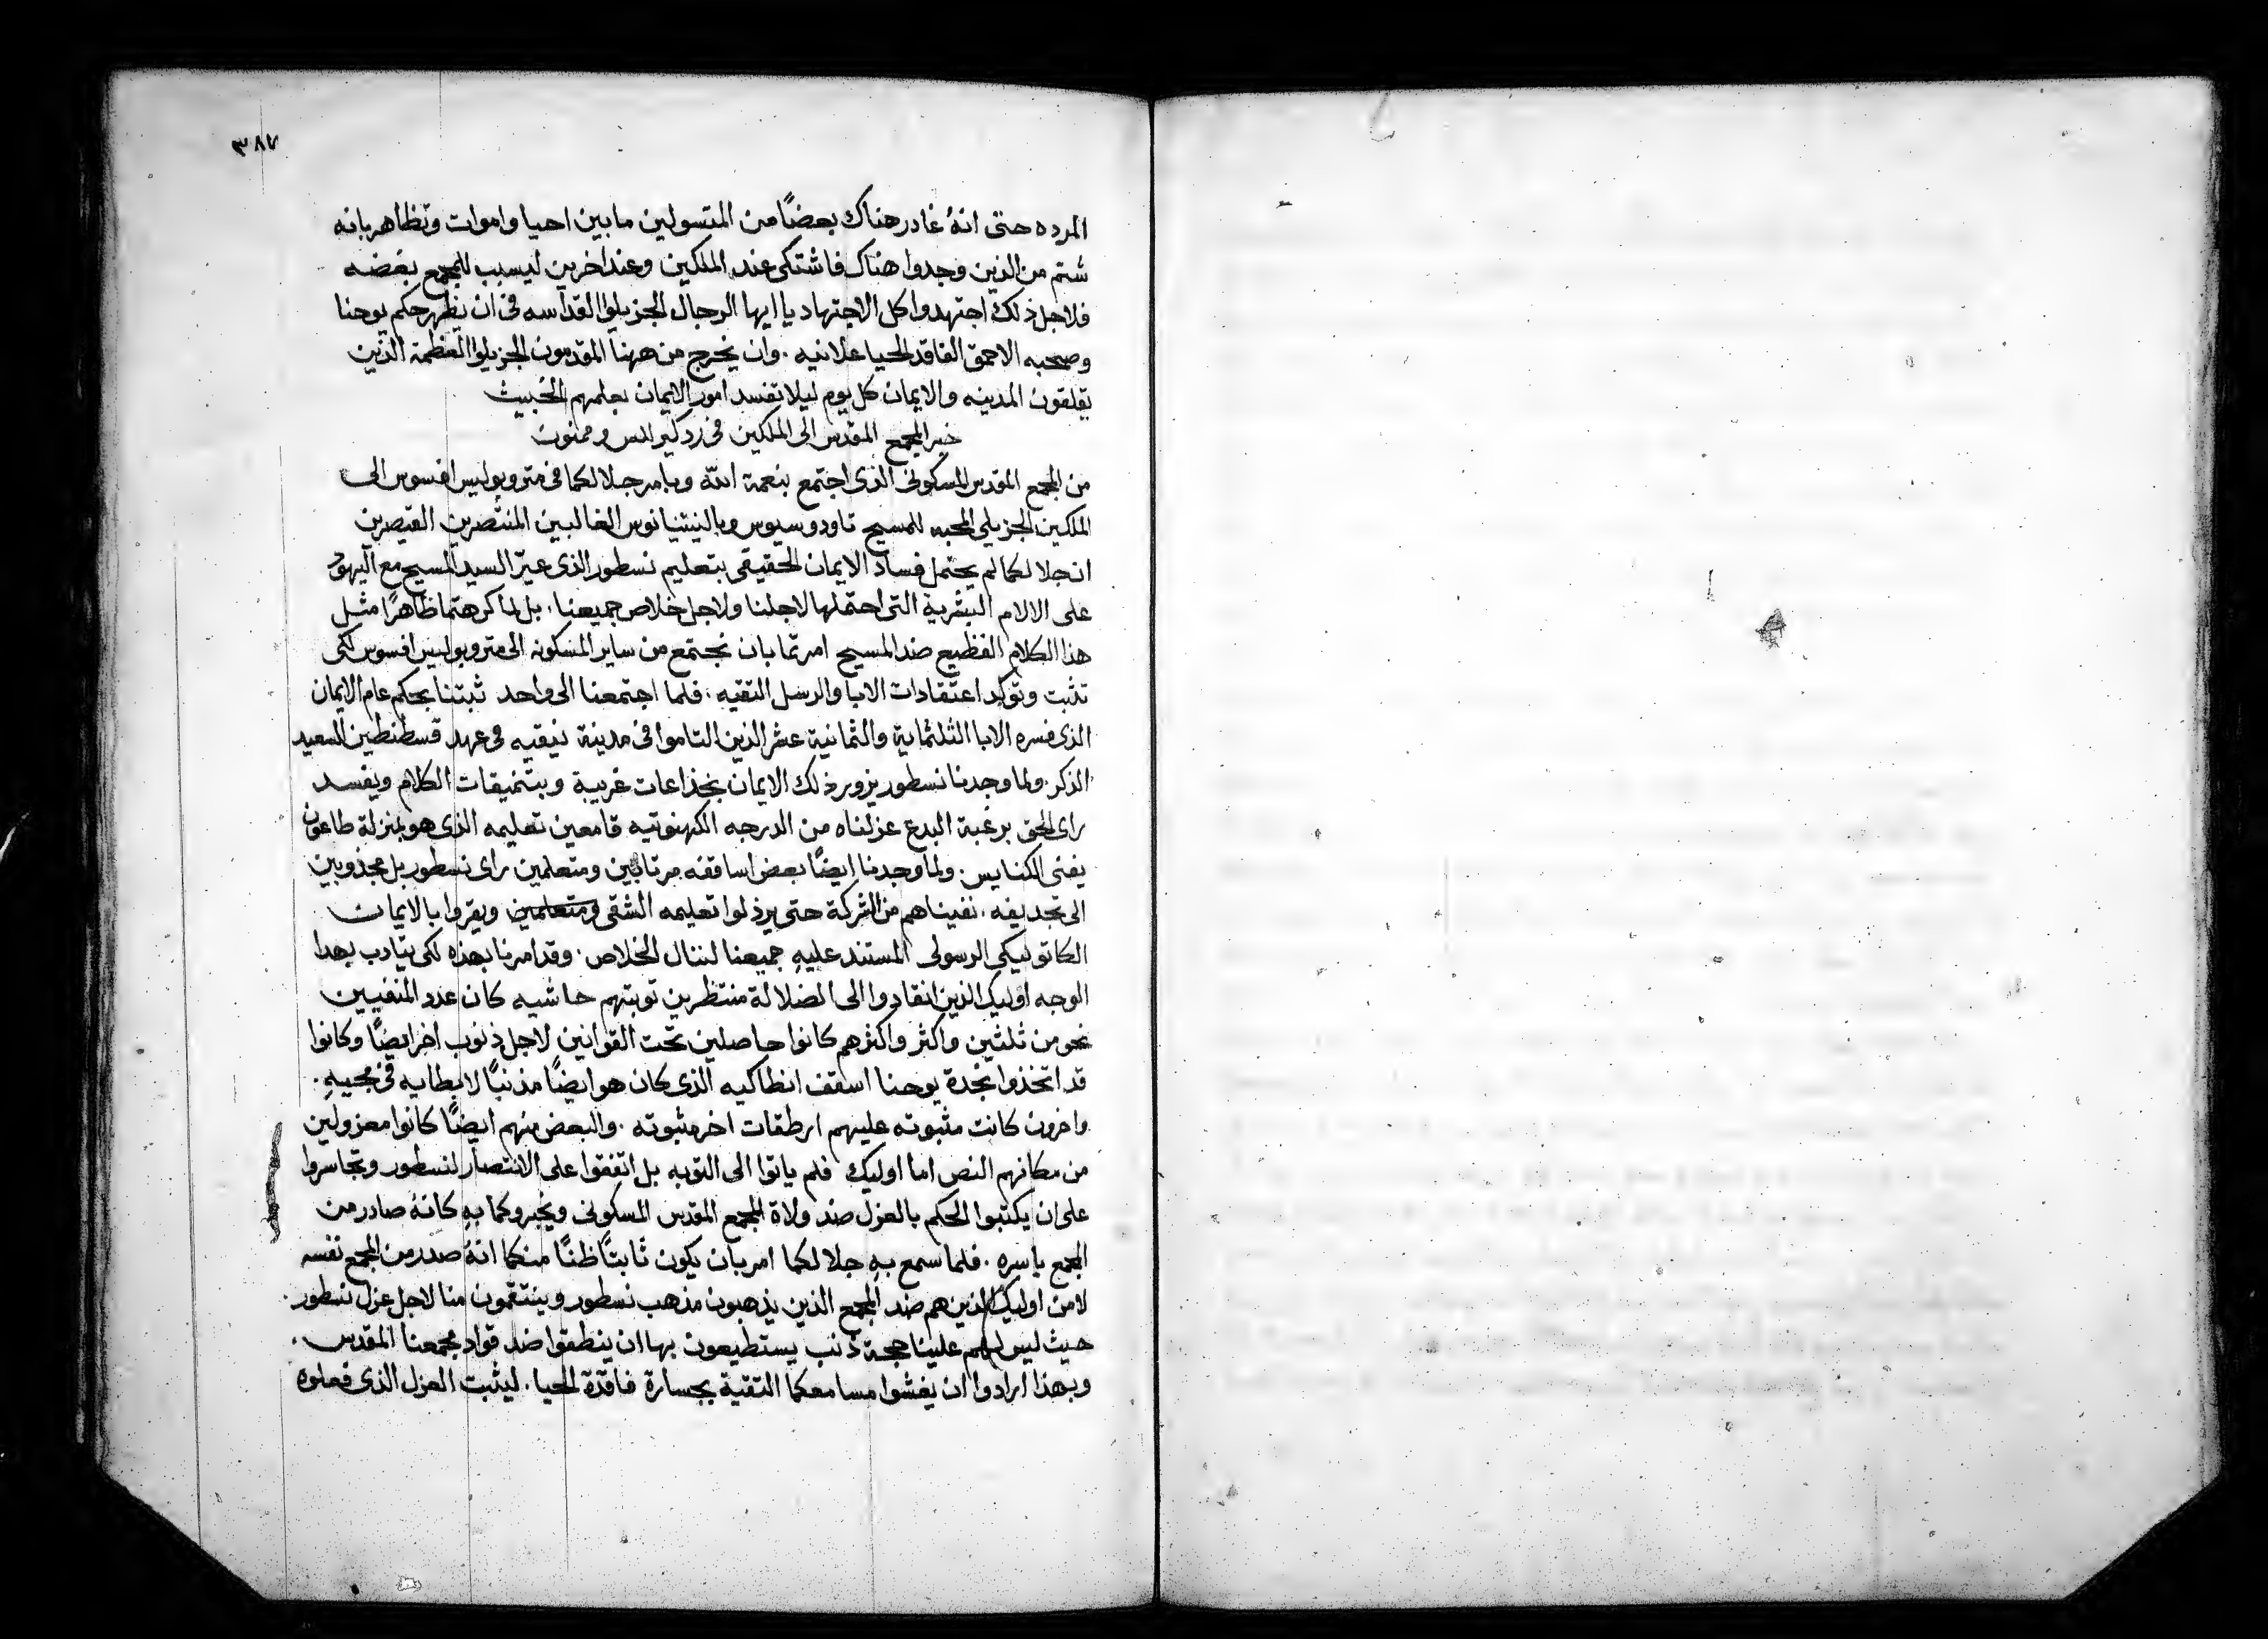 ٣٨٧
المرده حتى انهُ غادر هناك بعضًا من المتسولين ما بين احيا واموات وتظاهر بانه
شتم من الذين وجدوا هناك فاشتكى عند الملكين وعند اخرين ليسبب للمجمع بغضه
فلاجل ذلك اجتهدوا كل الاجتهاد يا ايها الرجال الجزيلوا القداسه فى ان يظهر حكم يوحنا
وصحبه الاحمق الفاقد الحيا علانيه . وان يخرج من ههنا المقدمون الجزيلوا العظمة الذين
يقلقون المدينه والايمان كل يوم ليلا تفسد امور الايمان بعلمهم الخبيث
خبر المجمع المقدس الى الملكين فى رد كيرللس وممنون
من المجمع المقدس المسكونى الذى اجتمع بنعمة الله وبامر جلالكما فى متروبوليس افسوس الى
الملكين الجزيلى المحبه للمسيح تاودوسيوس وبالنيتنيانوس الغالبين المنتصرين القيصرين
ان جلالكما لم يحتمل فساد الايمان الحقيقى بتعليم نسطور الذى عيّر السيد المسيح مع اليهود
على الالام البشرية التى احتملها لاجلنا ولاجل خلاص جميعنا . بل لما كرهتما ظاهرًا مثل
هذا الكلام الفظيع ضد المسيح امرتما بان نجتمع من ساير المسكونه الى متروبوليس افسوس لكى
تثبت وتؤكد اعتقادات الابا والرسل التقيه . فلما اجتمعنا الى واحد ثبتنا بحكم عام الايمان
الذى فسره الابا الثلثماية والثمانية عشر الذين التاموا فى مدينة نيقيه فى عهد قسطنطين السعيد
الذكر . ولما وجدنا نسطور يزور ذلك الايمان بخداعات غريبة وبتنميقات الكلام ويفسد
راى الحق برغبة البدع عزلناه من الدرجه الكهنوتيه قامعين تعليمه الذى هو بمنزلة طاعون
يفنى الكنايس . ولما وجدنا ايضًا بعض اساقفه مرتابين ومتعلمين راى نسطور بل مجذوبين
الى تجديفه . نفيناهم من الشركة حتى يرذلوا تعليمه الشقى ومتعلمين ويقروا بالايمان
الكاتوليكى الرسولى المستند عليهِ جميعنا لننال الخلاص . وقد امرنا بهذه لكى يتادب بهدا
الوجه اوليك الذين انقادوا الى الضلالة منتظرين توبتهم حاشيه كان عدد المنفيين
نحو من ثلثين واكثر واكثرهم كانوا حاصلين تحت القوانين لاجل ذنوب اخر ايضًا وكانوا
قد اتخذوا نجدة يوحنا اسقف انطاكيه الذى كان هو ايضًا مذنبًا لابطايه فى مجييهِ .
واخرون كانت مثبوته عليهم ارطقات اخر مثبوته . والبعض منهم ايضًا كانوا معزولين
من مكانهم النص اما اوليك فلم ياتوا الى التوبه بل اتفقوا على الانتصار لنسطور وتجاسروا
على ان يكتبوا الحكم بالعزل ضد ولاة المجمع المقدس المسكونى ويخبروكما بهِ كانهُ صادر من
المجمع باسره . فلما سمع بهِ جلالكما امر بان يكون ثابتًا ظنًا منكما انهُ صدر من المجمع نفسه
لا من اوليك الذين هم ضد المجمع الذين يذهبون مذهب نسطور وينتقمون منا لاجل عزل نسطور .
حيث ليس لهم علينا حجة ذنب يستطيعون بها ان ينطقوا ضد قواد مجمعنا المقدس .
وبهذا ارادوا ان يغشوا مسامعكما التقية بجسارة فاقدة الحيا . ليثبت العزل الذى فعلوه